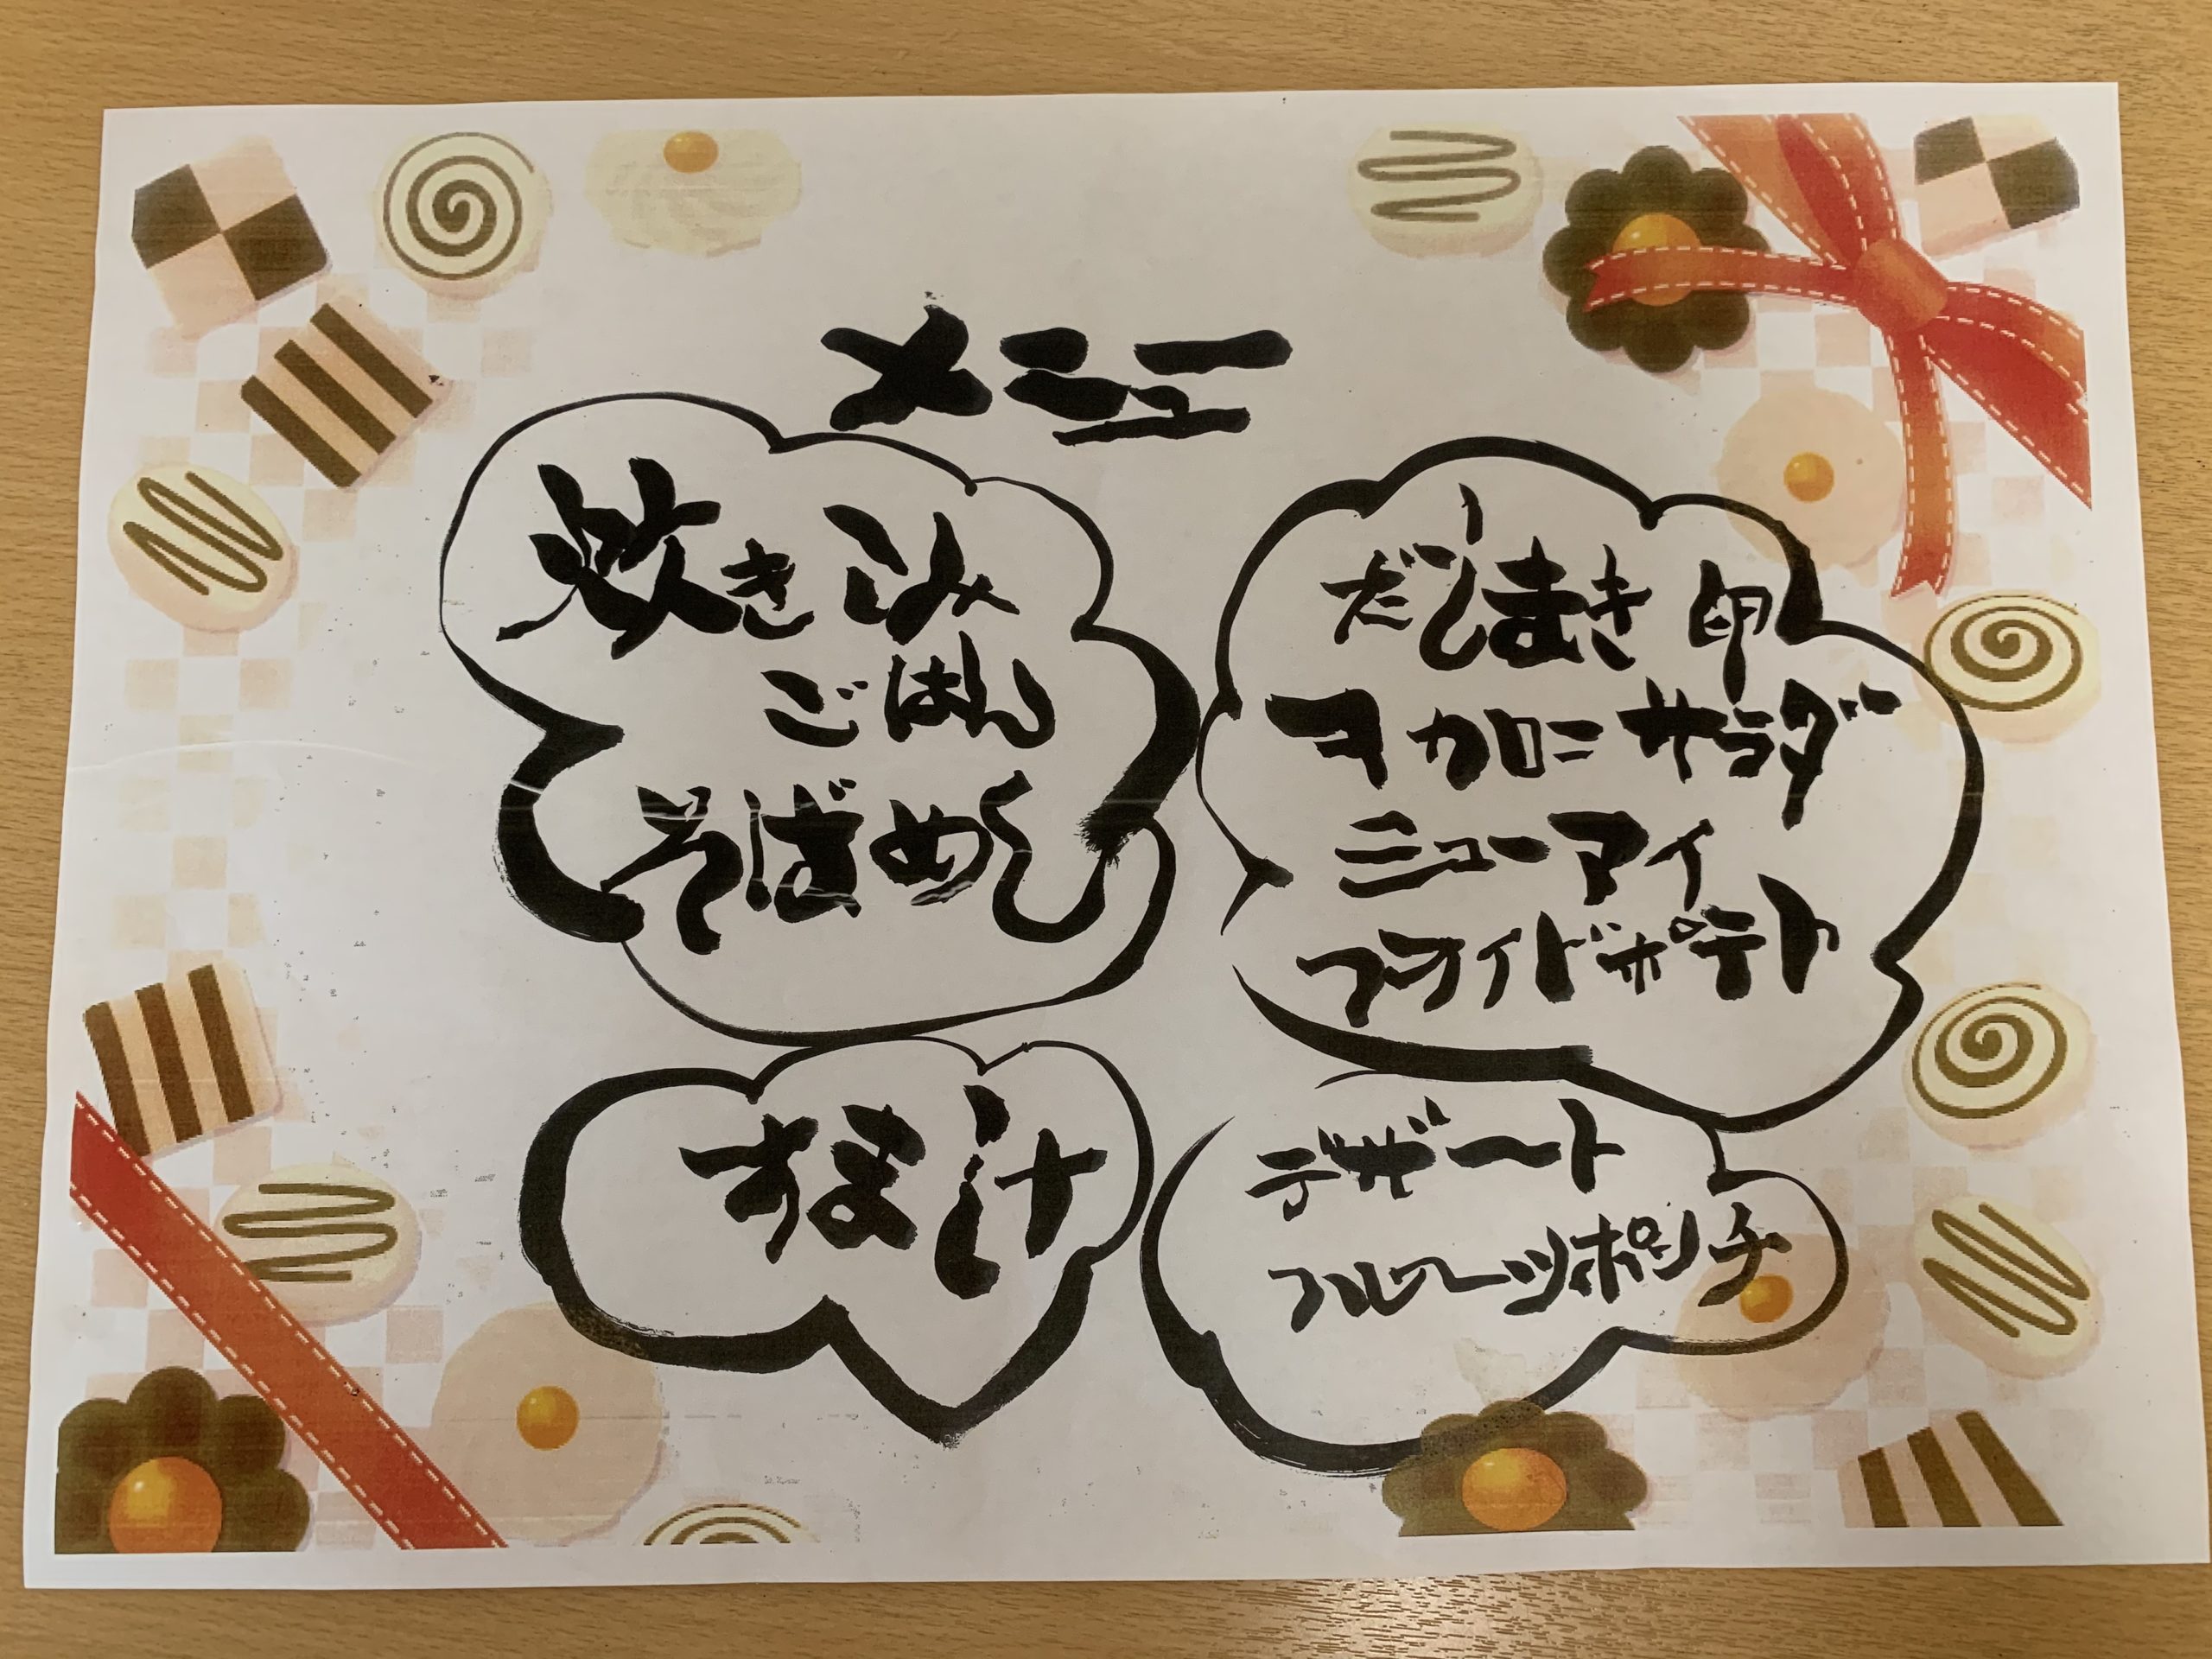 メニュー
炊きこみ
ごはん
そばめし
だしまき卵
マカロニサラダ
シューマイ
フライドポテト
すま汁
デザート
フルーツポンチ